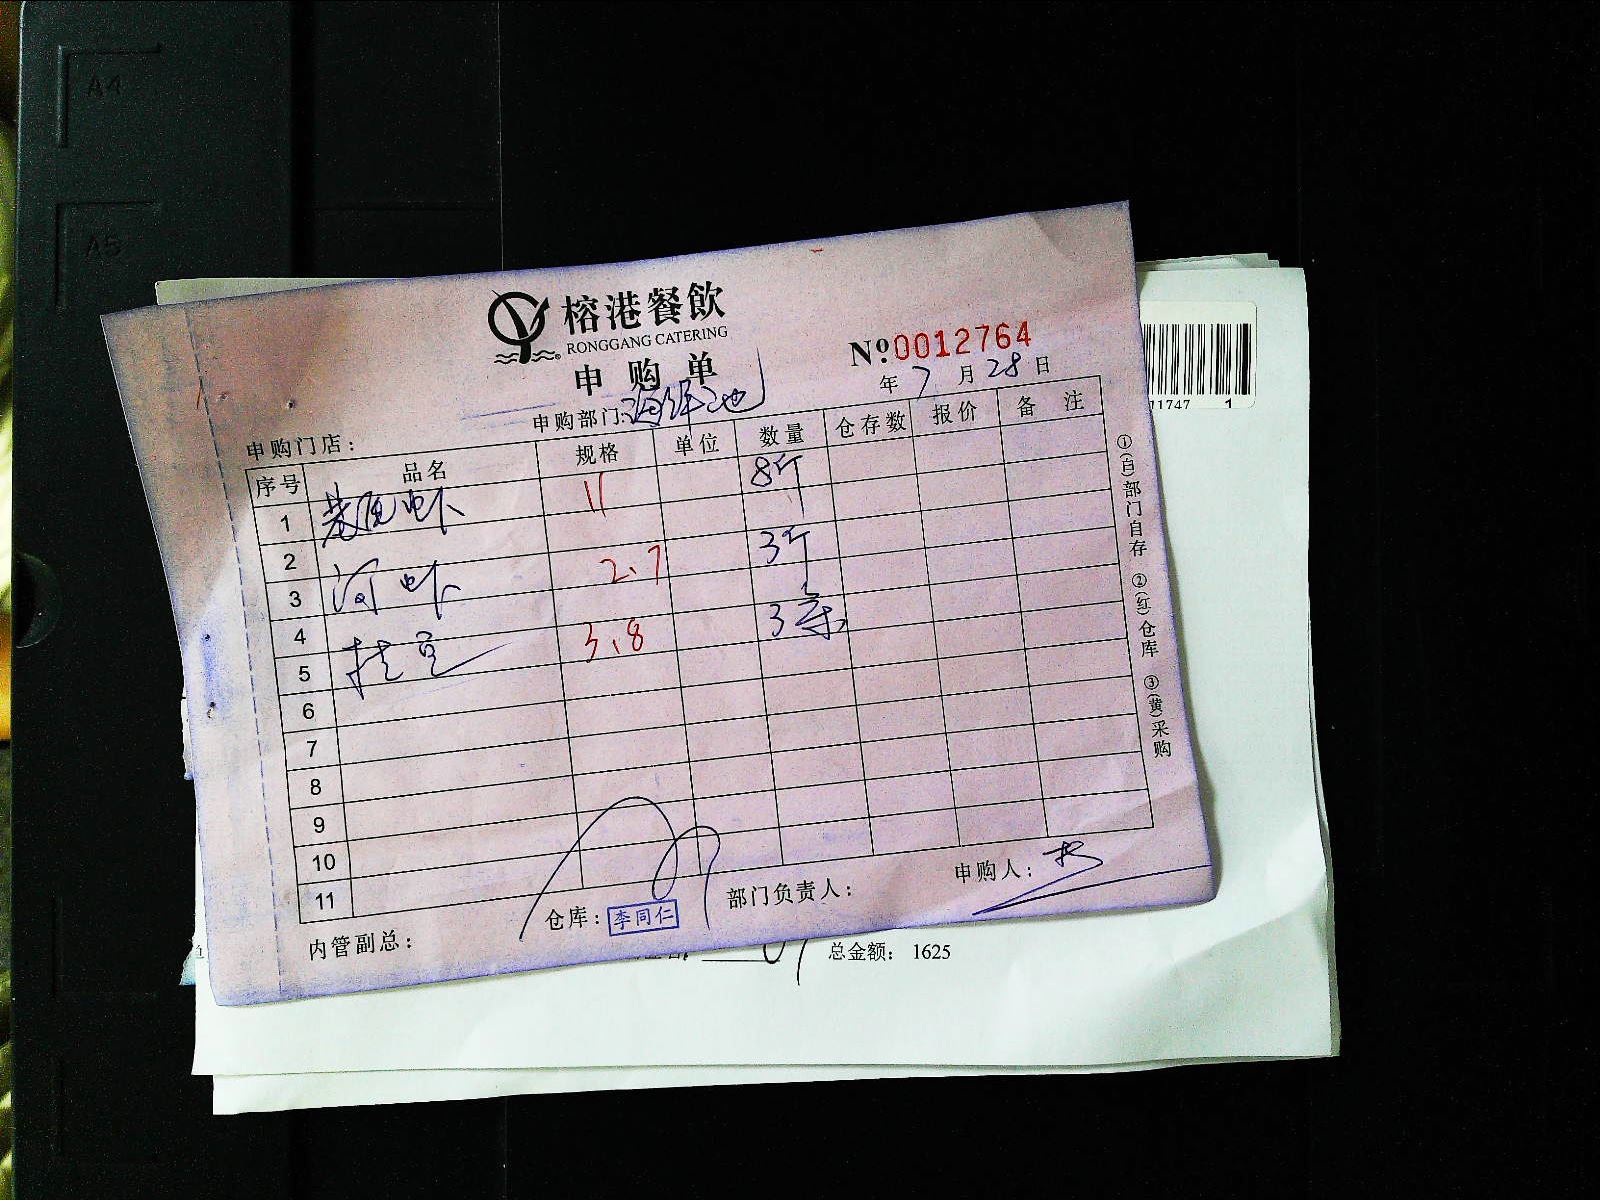 A4
A5
榕港餐飲
RONGGANG CATERING
申购单
No 0012764
年 7 月 28 日
申购门店： 申购部门:海鲜池
11747 1
序号 品名 规格 单位 数量 仓存数 报价 备注
1 虾 11 8斤
2
3 河虾 2.7 3斤
4
5 桂 3.8 3条
6
7
8
9
10
11
①(白)部门自存 ②(红)仓库 ③(黄)采购
内管副总： 仓库：李同仁 部门负责人： 申购人：
总金额： 1625